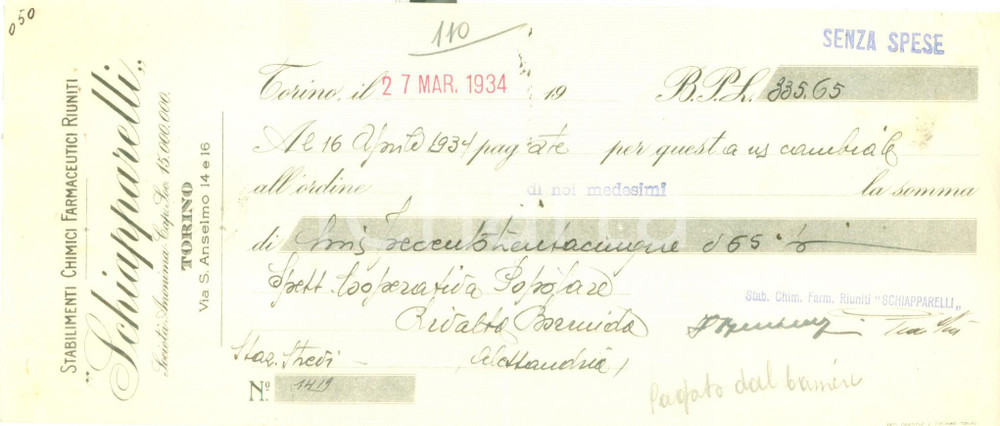 050
110
SENZA SPESE
STABILIMENTI CHIMICI FARMACEUTICI RIUNITI
"Schiapparelli"
Società Anonima Cap. Soc. 15.000.000.
TORINO
Via S. Anselmo 14 e 16
Torino, il 27 MAR. 1934 19 B.P.L. 335.65
Al 16 Aprile 1934 pagate per questa ns cambiale
all'ordine di noi medesimi la somma
di Lire trecentotrentacinque e 65
Spett. Cooperativa Popolare
Rivalta Bormida
(Alessandria)
Staz. Strevi
Stab. Chim. Farm. Riuniti "SCHIAPPARELLI"
No. 1419
Pagato dal